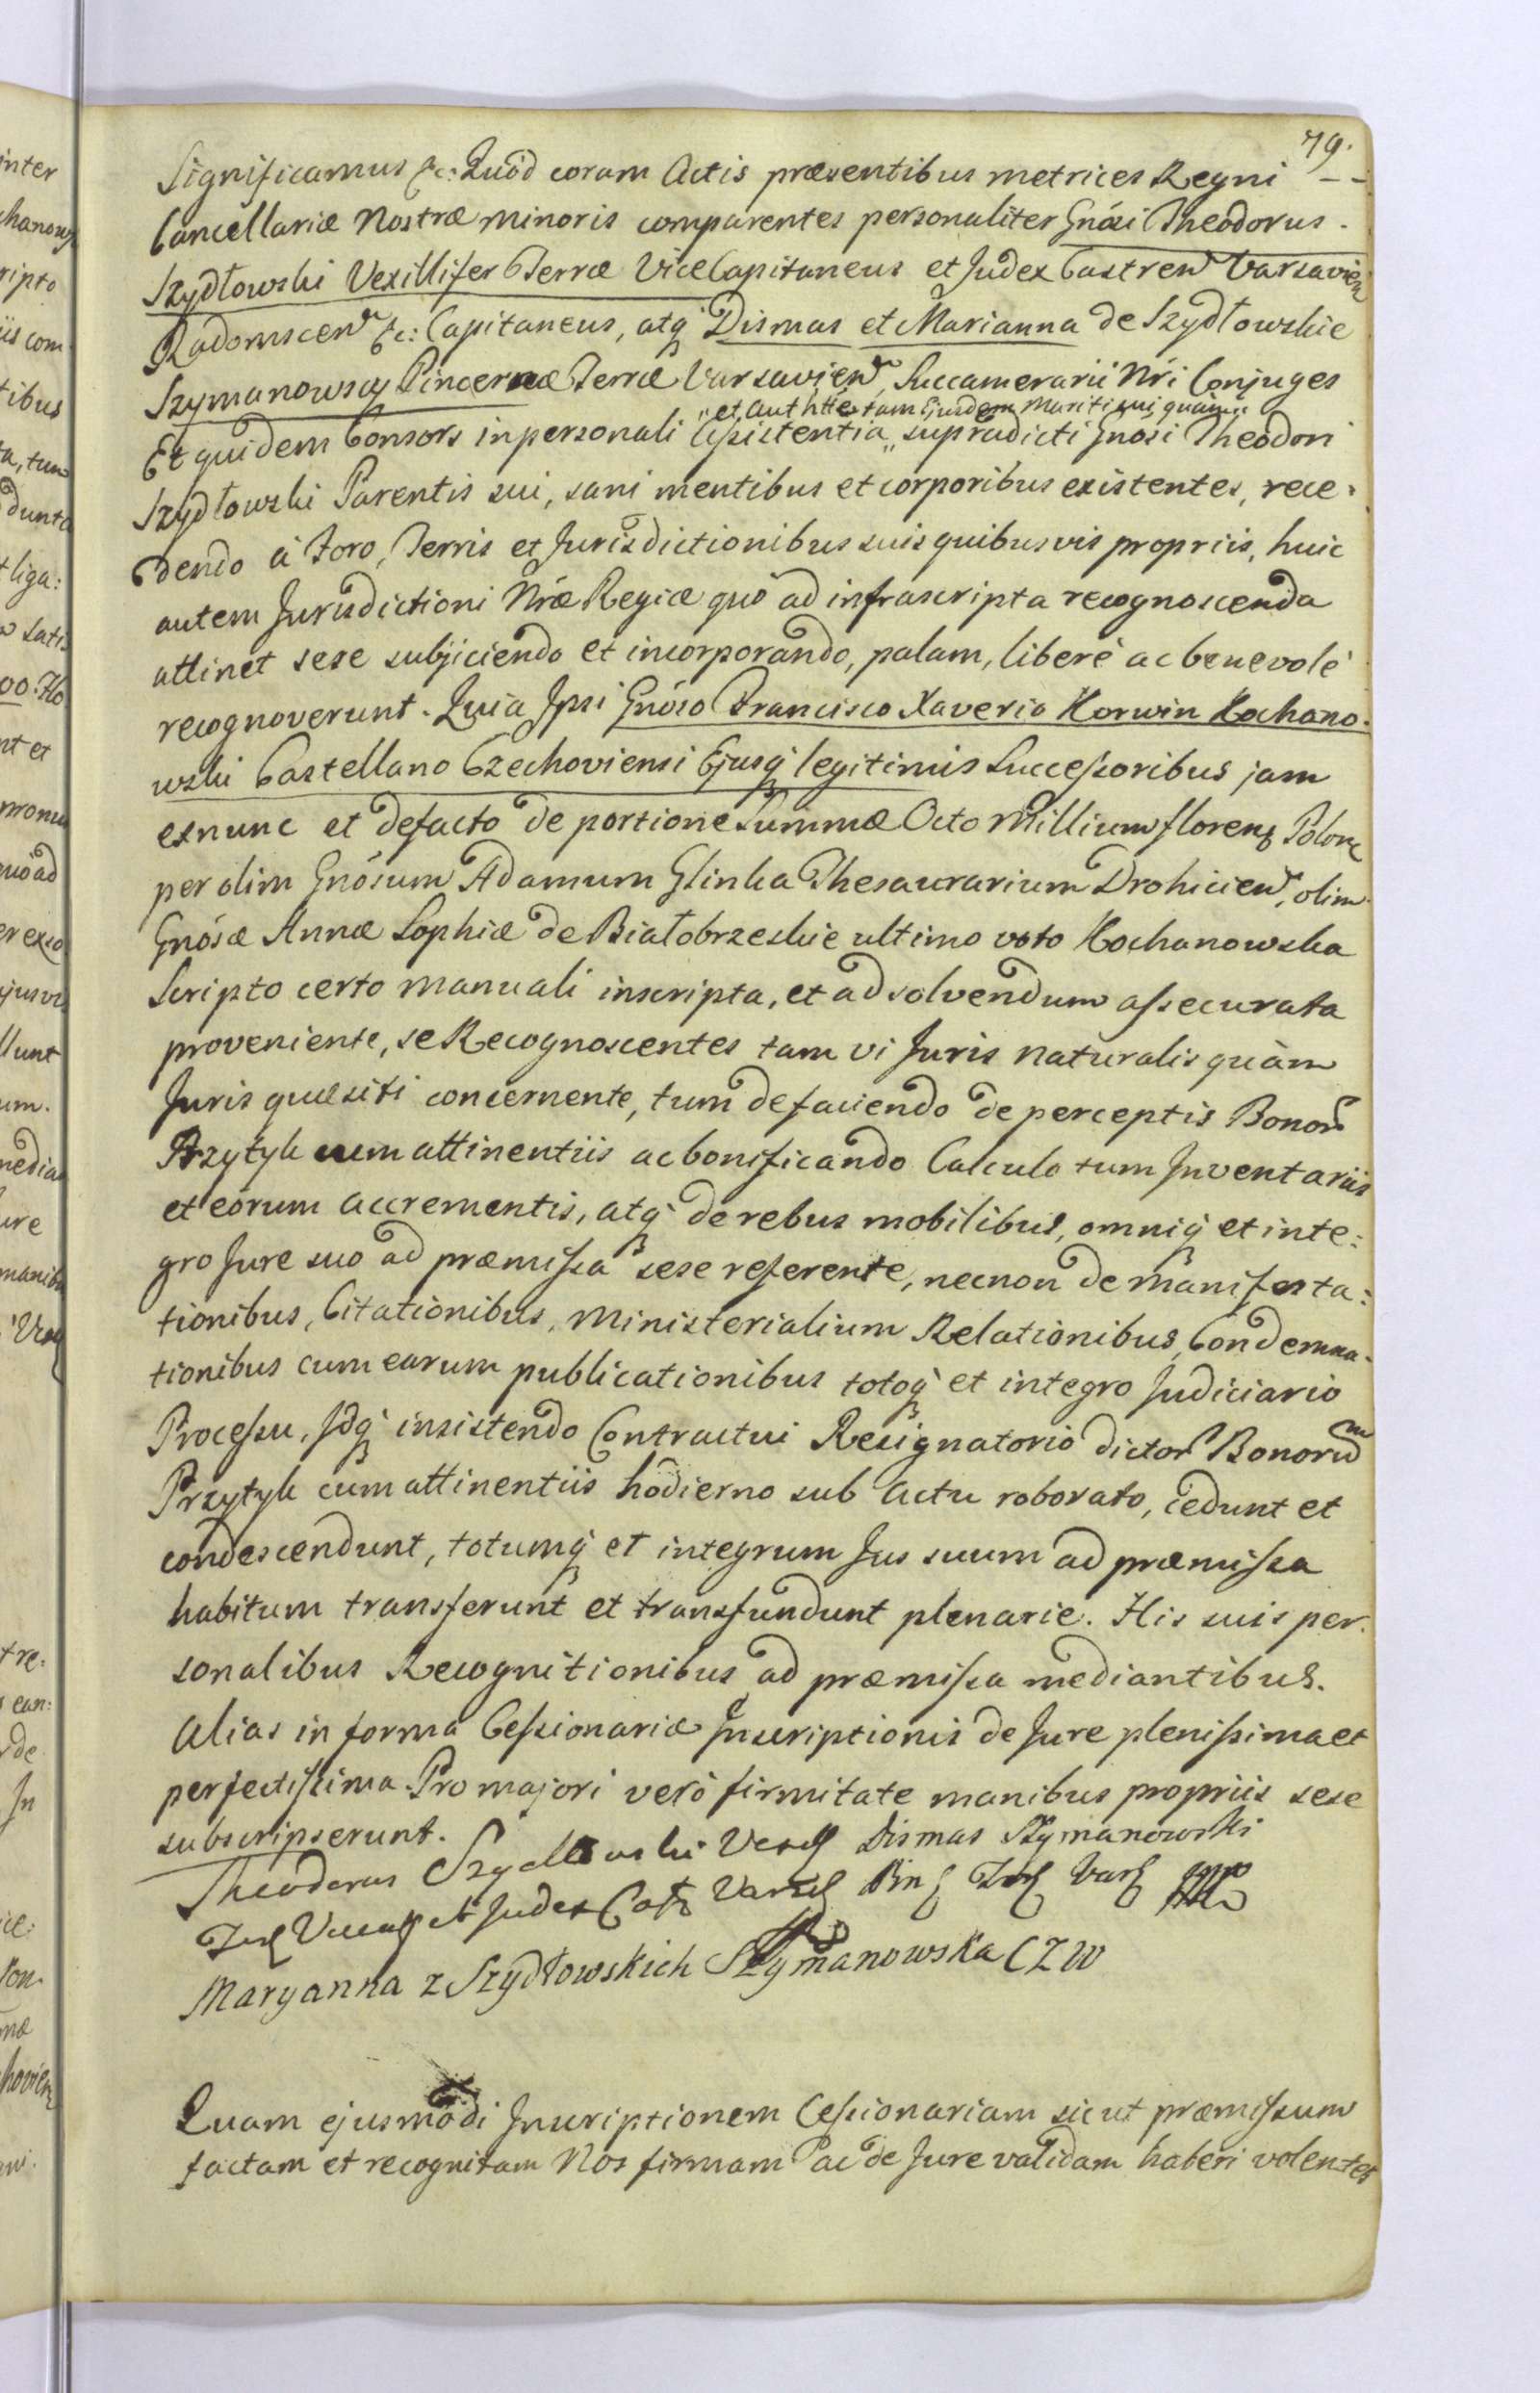 79.
Significamus &c: Quòd coram Actis præsentibus metrices Regni - -
Cancellariæ Nostræ minoris comparentes personaliter Gnósi Theodorus.
Szydłowski Vexillifer Terræ ViceCapitaneus et Judex Castren Varsavien
Radomscen &c: Capitaneus, atq Dismas et Marianna de Szydłowskie
Szymanowscy Pincernæ Terræ Varsavien, Succamerarii Nri Conjuges
„et Authtte tam Ejusdem Mariti sui quàm„
Et quidem Consors in personali Assistentia „ supradicti Gnosi Theodori
Szydłowski Parentis sui, sani mentibus et corporibus existentes, rece-
dendo à Foro, Terris et Jurisdictionibus suis quibusvis propriis, huic
autem Jurisdictioni Nræ Regiæ quò ad infrascripta recognoscenda
attinet sese subjiciendo et incorporando, palam, liberè ac benevolè
recognoverunt. Quia Ipsi Gnóso Francisco Xaverio Korwin Kochano-
wski Castellano Czechoviensi Ejusq legitimis Successoribus jam
exnunc et defacto de portione Summæ Octo Millium floren Polon
per olim Gnósum Adamum Glinka Thesaurarium Drohicien, olim
Gnósæ Annæ Sophiæ de Białobrzeskie ultimo voto Kochanowska
Scripto certo manuali inscripta, et ad solvendum assecurata
proveniente, se Recognoscentes tam vi Juris naturalis quàm
Juris quæsiti concernente, tum de faciendo de perceptis Bonor
Przytyk cum attinentiis ac bonificando Calculo tum Inventariis
et eorum accrementis, atq de rebus mobilibus, omniq et inte:
gro Jure suo ad præmissa sese referente, necnon de manifesta:
tionibus, Citationibus, Ministerialium Relationibus, Condemna-
tionibus cum earum publicationibus totoq et integro Judiciario
Processu, Idq insistendo Contractui Resignatorio dictor Bonorum
Przytyk cum attinentiis hodierno sub Actu roborato, cedunt et
condescendunt, totumq et integrum Jus suum ad præmissa
habitum transferunt et transfundunt plenarie. His suis per-
sonalibus Recognitionibus ad præmissa mediantibus.
Alias in forma Cessionariæ Inscriptionis de Jure plenissima et
perfectissima. Pro majori verò firmitate manibus propriis sese
subscripserunt.
Theodorus Szydłowski Vex Dismas Szymanowski
Ter Vicecap et Judex Cast Vars Pin Ter Vars
Maryanna z Szydłowskich Szymanowska CZW
Quam ejusmodi Inscriptionem Cessionariam sicut præmissum
factam et recognitam Nos firmam ac de Jure validam haberi volentes